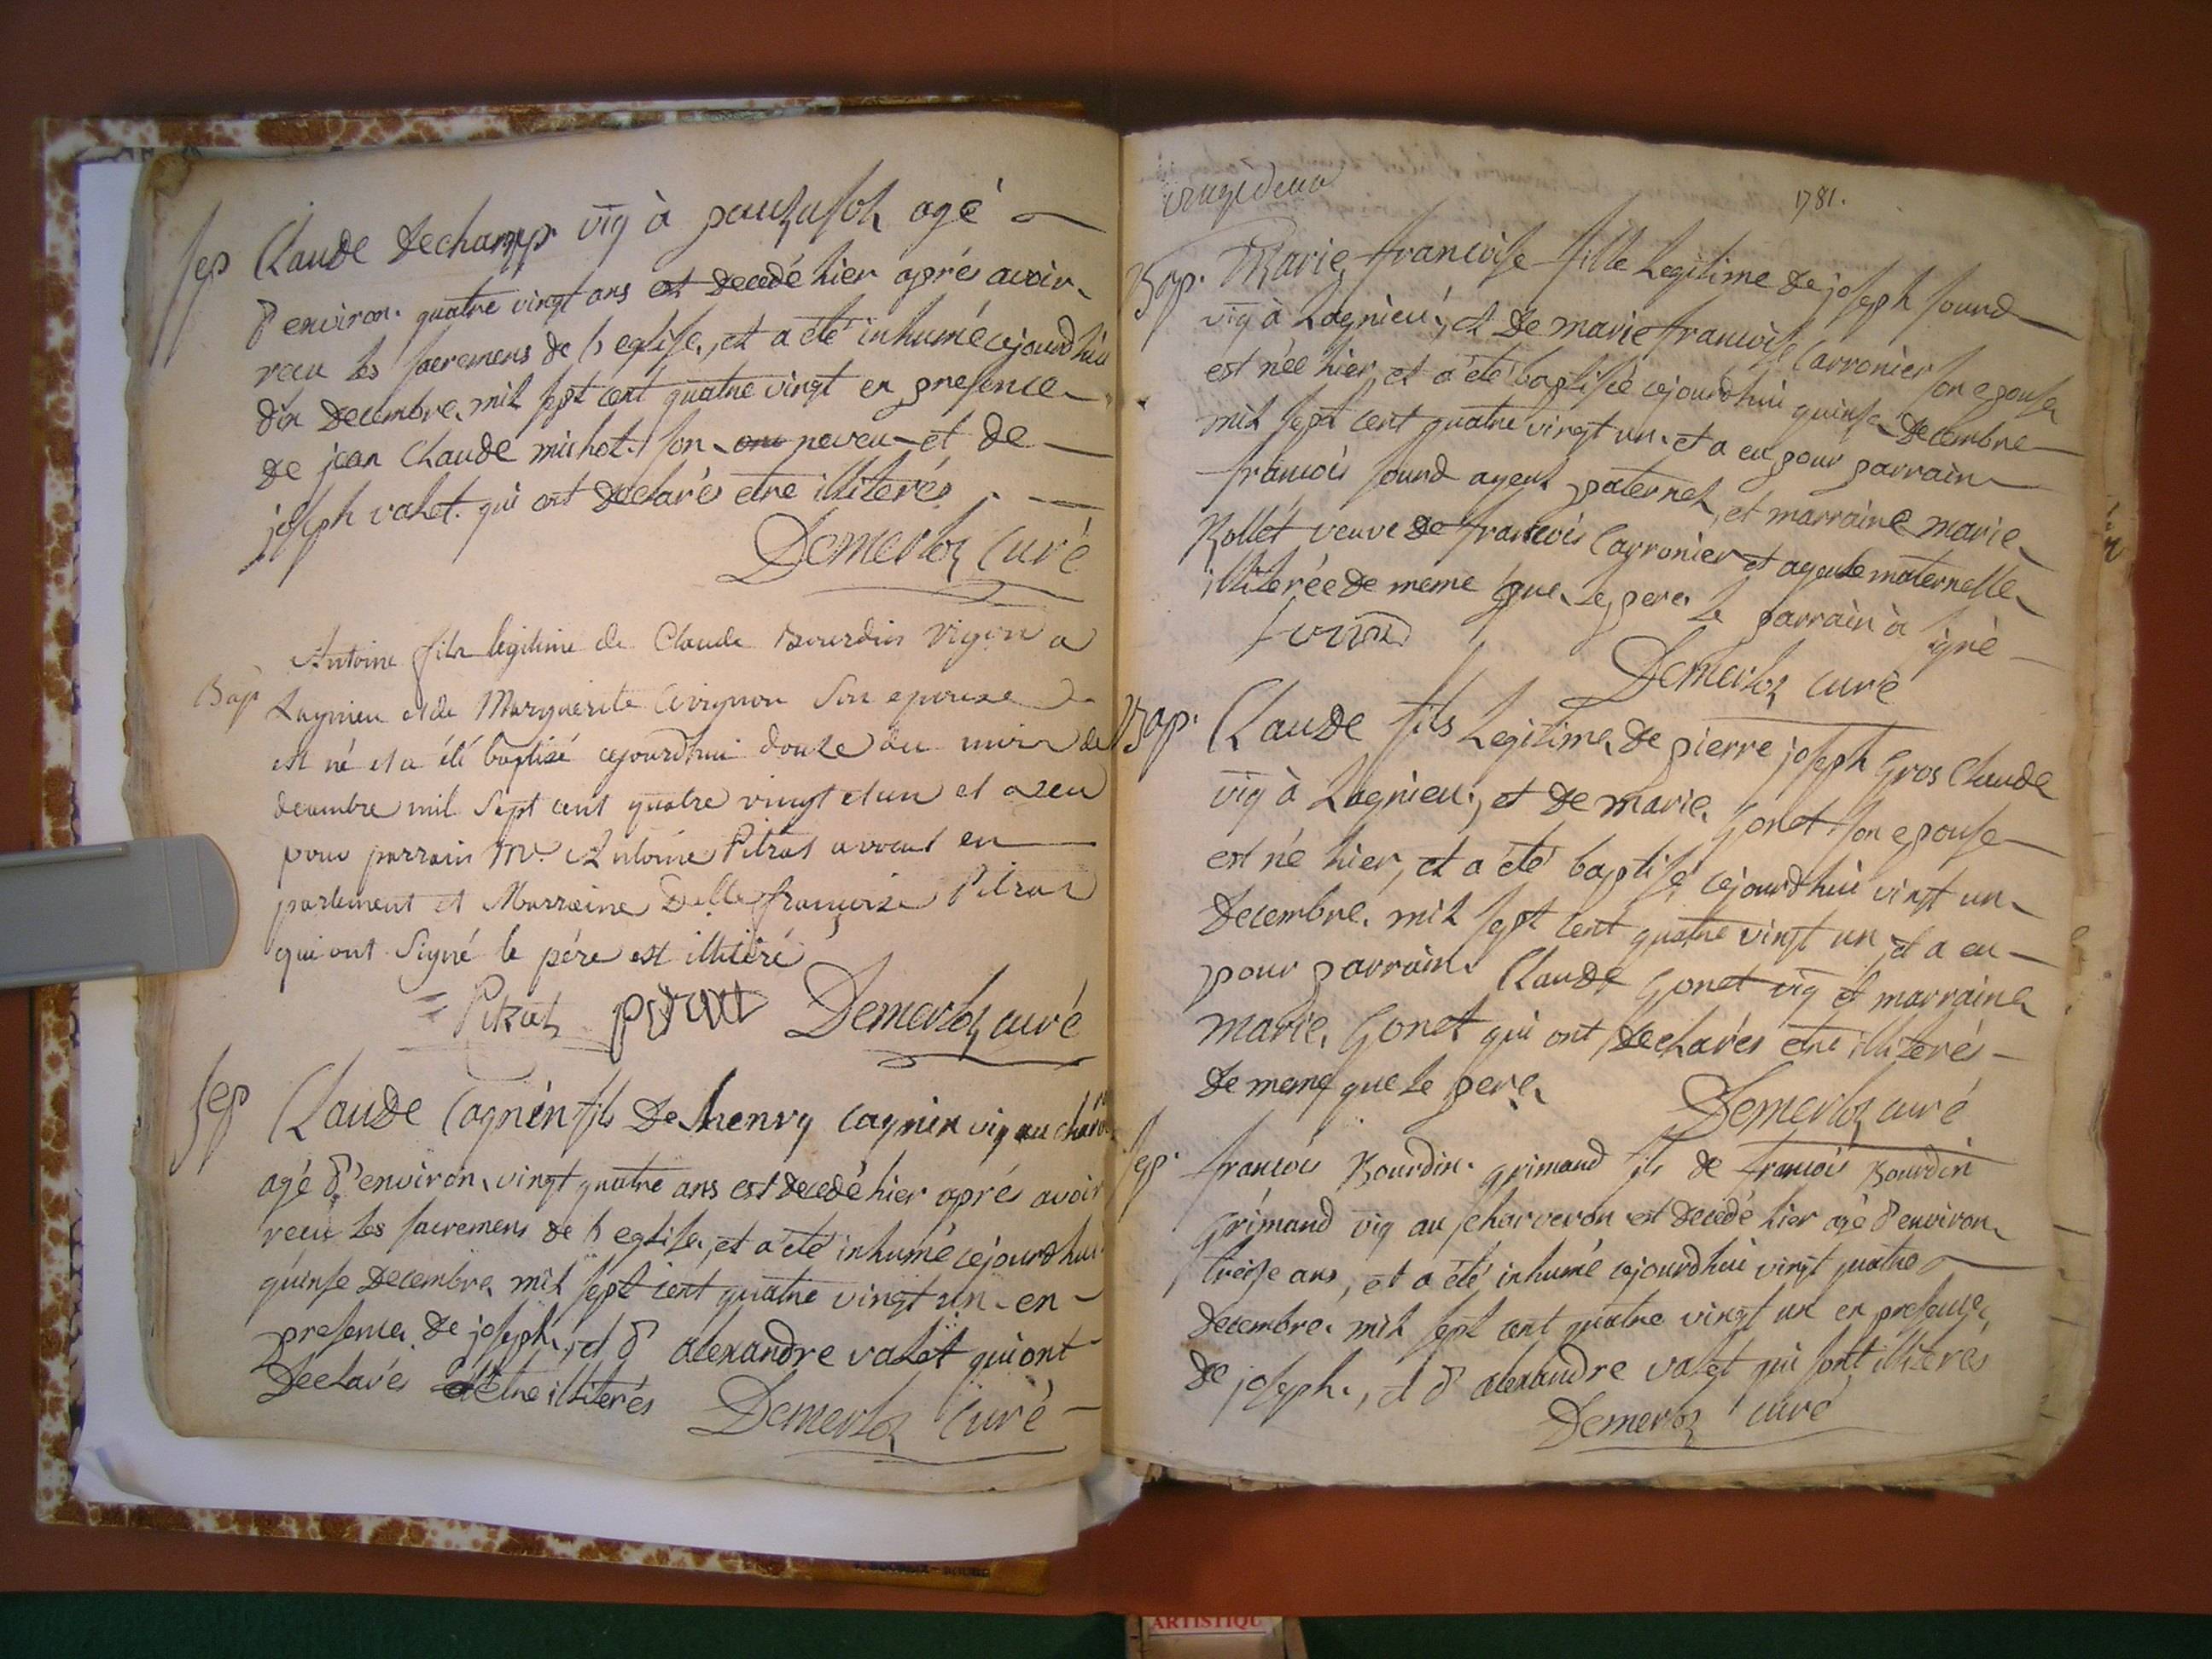 Sep Claude Dechamp vig à agé
d'environ quatre vingt ans est decedé hier aprés avoir
recu les sacremens de l'eglise, et a été inhumé cejourdhui
dix Decembre mil sept cent quatre vingt en presence
de jean Claude michot son neveu et de
joseph valet qui ont declarés etre illiterés
Demerloz curé
Antoine fils legitime de Claude Bourdin vigon a
Bap Lagnieu et de Marguerite son epouse
est né et a été baptisé cejourdhui douze du mois de
decembre mil Sept cent quatre vingt et un et a eu
pour parrain Mr. Antoine Pitrat avocat en
parlement et Marraine Delle françoise Pitrat
qui ont Signé le pére est illitéré
Pitrat pitrat Demerloz curé
Sep Claude Cagnin fils De henry cagnin vig au
agé d'environ vingt quatre ans est decedé hier aprés avoir
recu les sacremens de l'eglise, et a été inhumé cejourdhui
quinse Decembre mil sept cent quatre vingt un en
presence de joseph, et d'alexandre valet qui ont
Declarés etre illiterés Demerloz curé
1781.
Bap. Marie francoise fille Legitime de joseph sourd
vig à Lagnieu, et de marie francoise Carronier son epouse
est née hier, et a été baptisée cejourdhui quinse Decembre
mil sept cent quatre vingt un et a eu pour parrain
francois sourd ayeul paternel, et marraine marie
Rollet veuve de francois Carronier et ayeule maternelle
illiterée de meme que le pere le parrain à signé
Demerloz curé
Bap. Claude fils Legitime de pierre joseph Gros Claude
vig à Lagnieu, et de marie Gonet son epouse
est né hier, et a été baptisé cejourdhui vingt un
Decembre mil sept cent quatre vingt un et a eu
pour parrain Claude Gonet vig et marraine
marie Gonet qui ont declarés etre illiterés
de meme que le pere
Demerloz curé
Sep. francois Bourdin grimand fils de francois Bourdin
grimand vig au charveron est decedé hier agé d'environ
treise ans, et a été inhumé cejourdhui vingt quatre
decembre mil sept cent quatre vingt un en presence
de joseph, et d'alexandre valet qui sont illiterés
Demerloz curé
ARTISTIQU